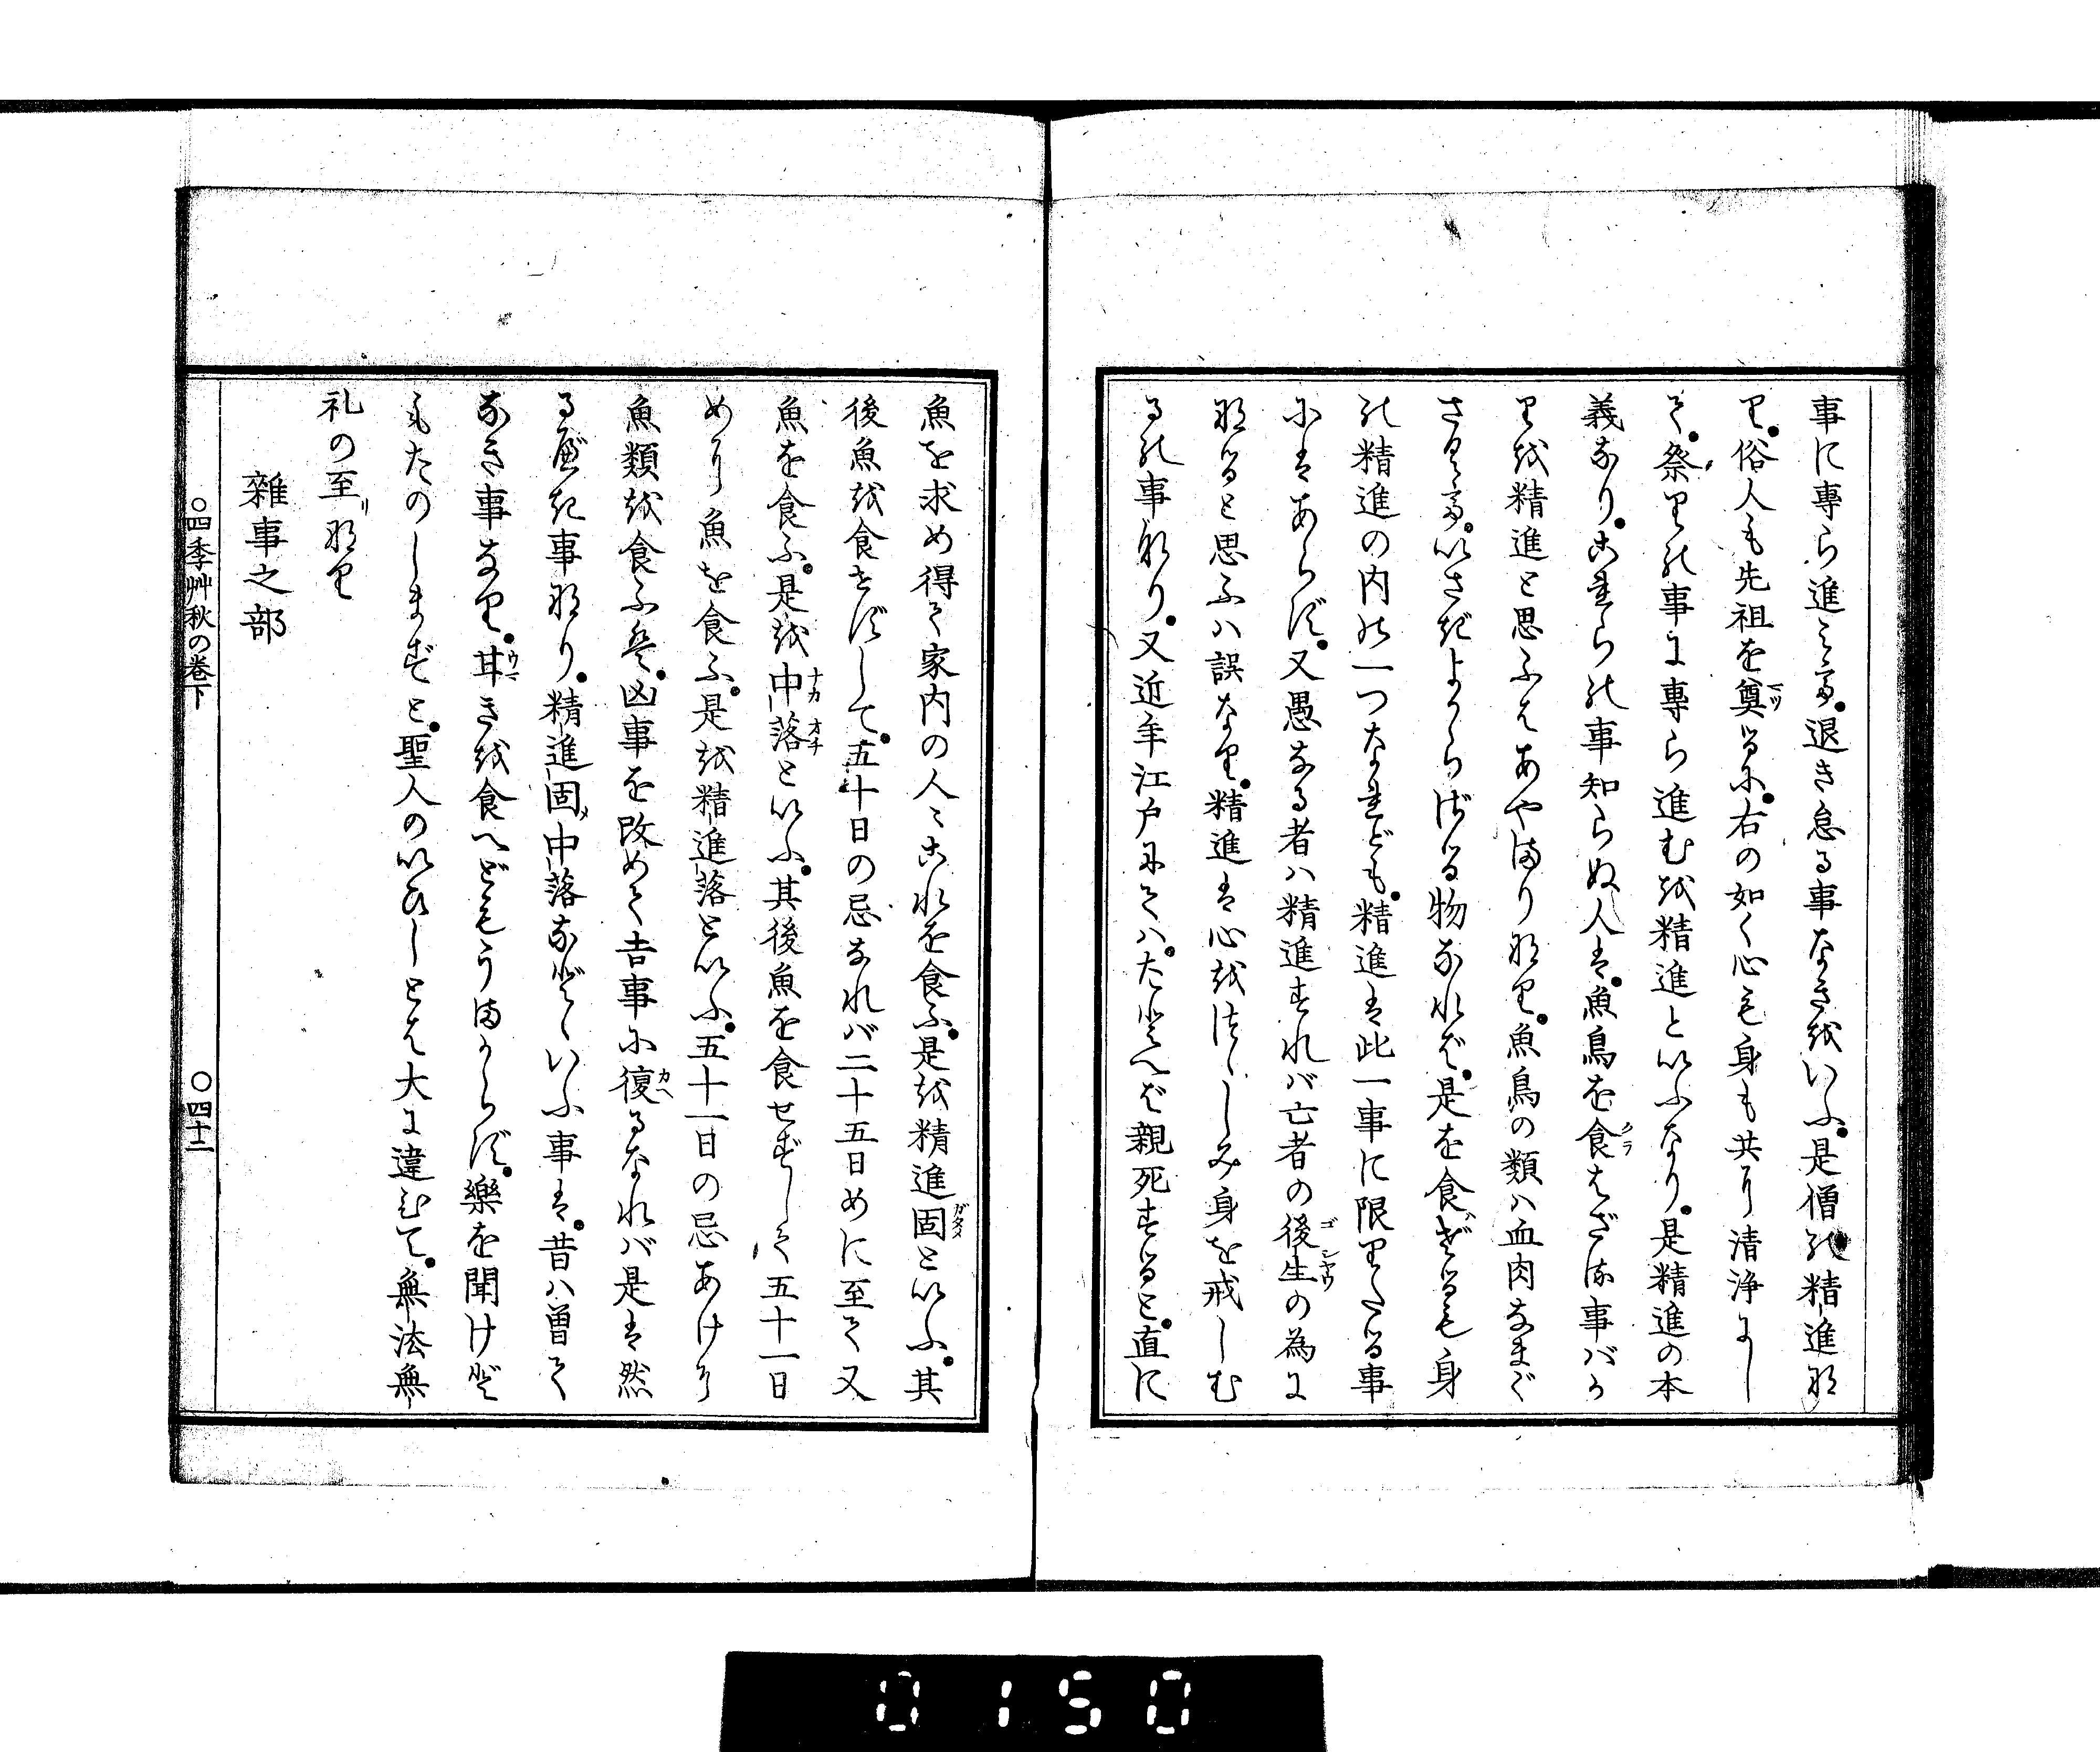 事に專ら進みて。退き怠る事なきをいふ。是僧の精進な
り。俗人も先祖を奠るに。右の如く心も身も共に清浄にし
て。祭りの事に專ら進むを精進といふなり。是精進の本
義なり。これらの事知らぬ人は。魚鳥を食はざる事ばか
りを精進と思ふはあやまりなり。魚鳥の類ハ血肉なまぐ
さくて。いさぎよからざる物なれば。是を食ざるも身
の精進の内の一つなれども。精進は此一事に限りたる事
にはあらず。又愚なる者ハ精進すればバ亡者の後生の為に
なると思ふハ誤なり。精進は心をつゝしみ身を戒しむ
るの事なり。又近年江戸にてハ。たとへば親死すると。直に
魚を求め得て家内の人々これを食ふ。是を精進固といふ。其
後魚を食せずして。五十日の忌なれバ二十五日めに至て又
魚を食ふ。是を中落といふ。其後魚を食せずして五十一日
めに魚を食ふ。是を精進落といふ。五十一日の忌あけに
魚類を食ふは。凶事を改めて吉事に復るなれバ是は然
るべき事なり。精進固メ中落などゝいふ事は。昔ハ曽て
なき事なり。甘きを食へどもうまからず。樂を聞けど
もたのしまずと。聖人のいひしとは大に違ひて。無法無
礼の至リなり
雜事之部
○四季艸秋の巻下
○四十二
0150